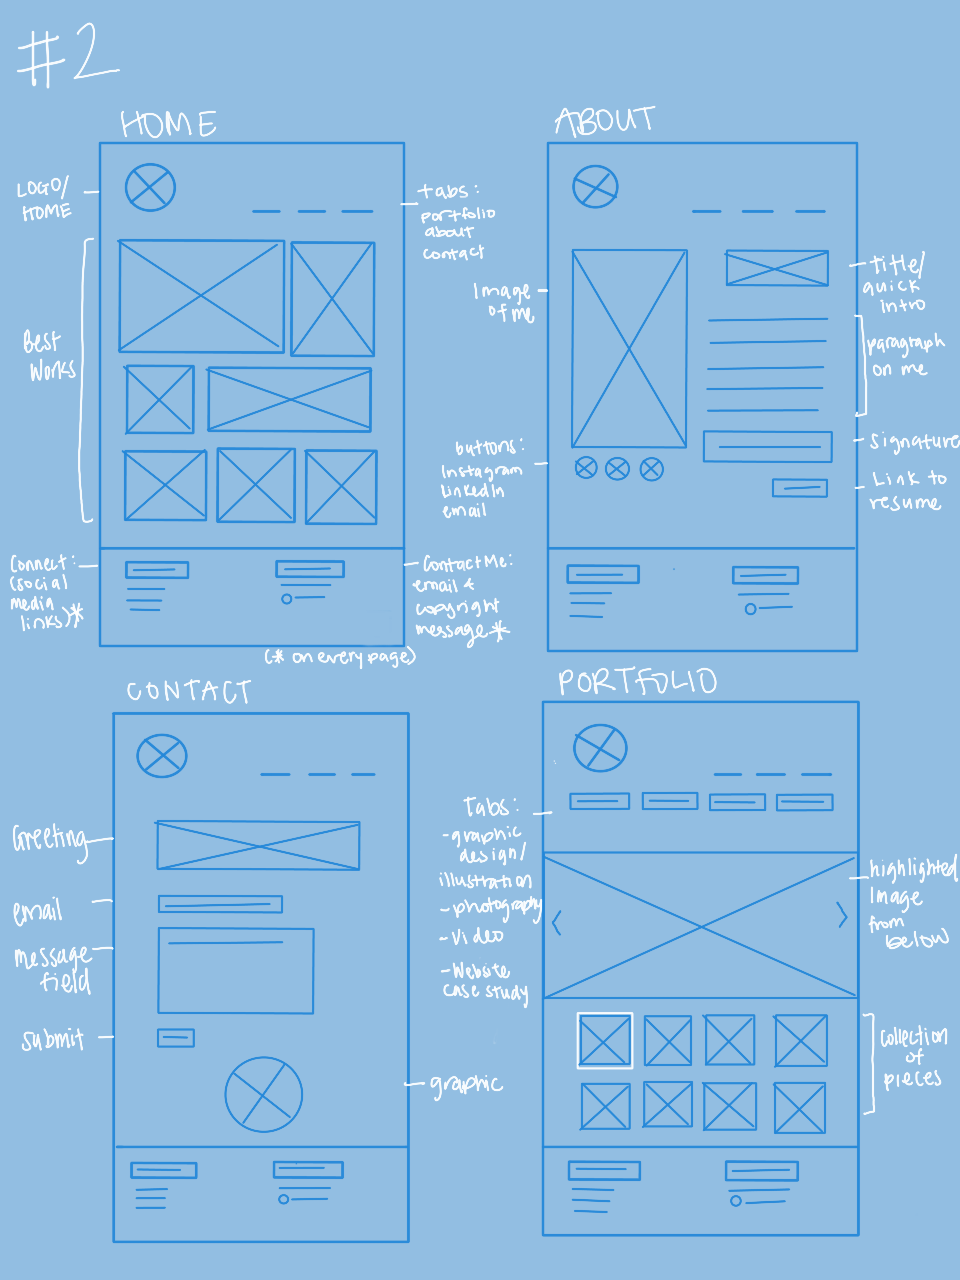 #2
HOME
LOGO/
HOME
tabs:
portfolio
about
contact
Best
Works
Connect:
(social
media
links)*
Contact Me:
email &
copyright
message *
(* on every page)
ABOUT
Image
of me
Title/
quick
intro
paragraph
on me
buttons:
Instagram
LinkedIn
email
signature
Link to
resume
CONTACT
Greeting
email
message
field
submit
graphic
PORTFOLIO
Tabs:
-graphic
design/
illustration
-photography
-Video
-Website
case study
highlighted
Image
from
below
Collection
of
pieces